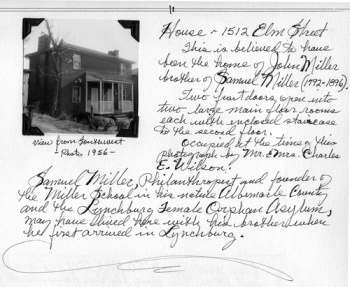 House - 1512 Elm Street
This is believed to have
been the home of John Miller
brother of Samuel Miller (1792-1896).
Two front doors open into
two large main floor rooms
each with enclosed staircase
to the second floor.
Occupied at the time of this
photograph by Mr. & Mrs. Charles
E. Wilson.
View from Southwest
- Photo 1956 -
Samuel Miller, Philanthropist and founder of
the Miller School in his native Albemarle County
and the Lynchburg Female Orphan Asylum,
may have lived here with his brother when
he first arrived in Lynchburg.